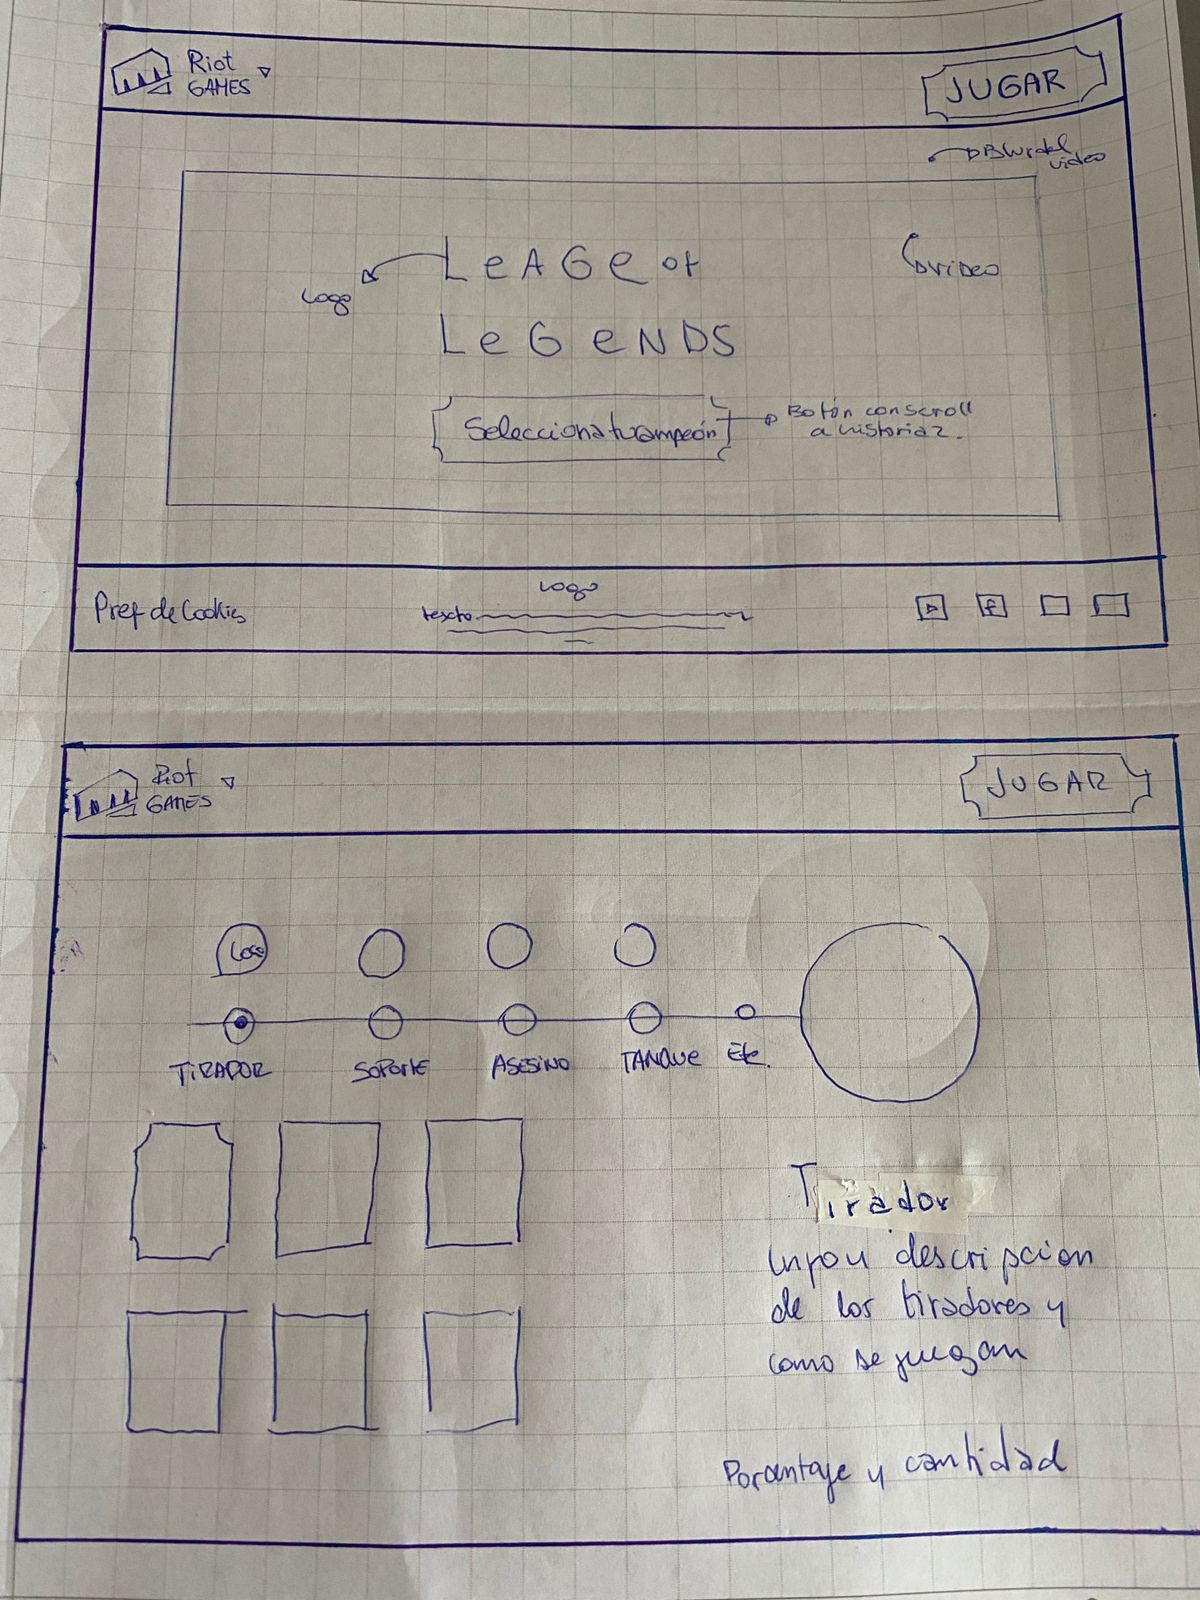 Riot
GAMES
JUGAR
Blur del
video
LeAGe of
Logo
video
LeGeNDS
Selecciona tu campeón
Botón con scroll
a historia 2.
Pref de Cookies
Logo
texto
f
Riot
GAMES
JUGAR
Logo
TIRADOR
SOPORTE
ASESINO
TANQUE
Etc.
Tirador
Info y descripcion
de los tiradores y
como se juegan
Porcentaje y cantidad